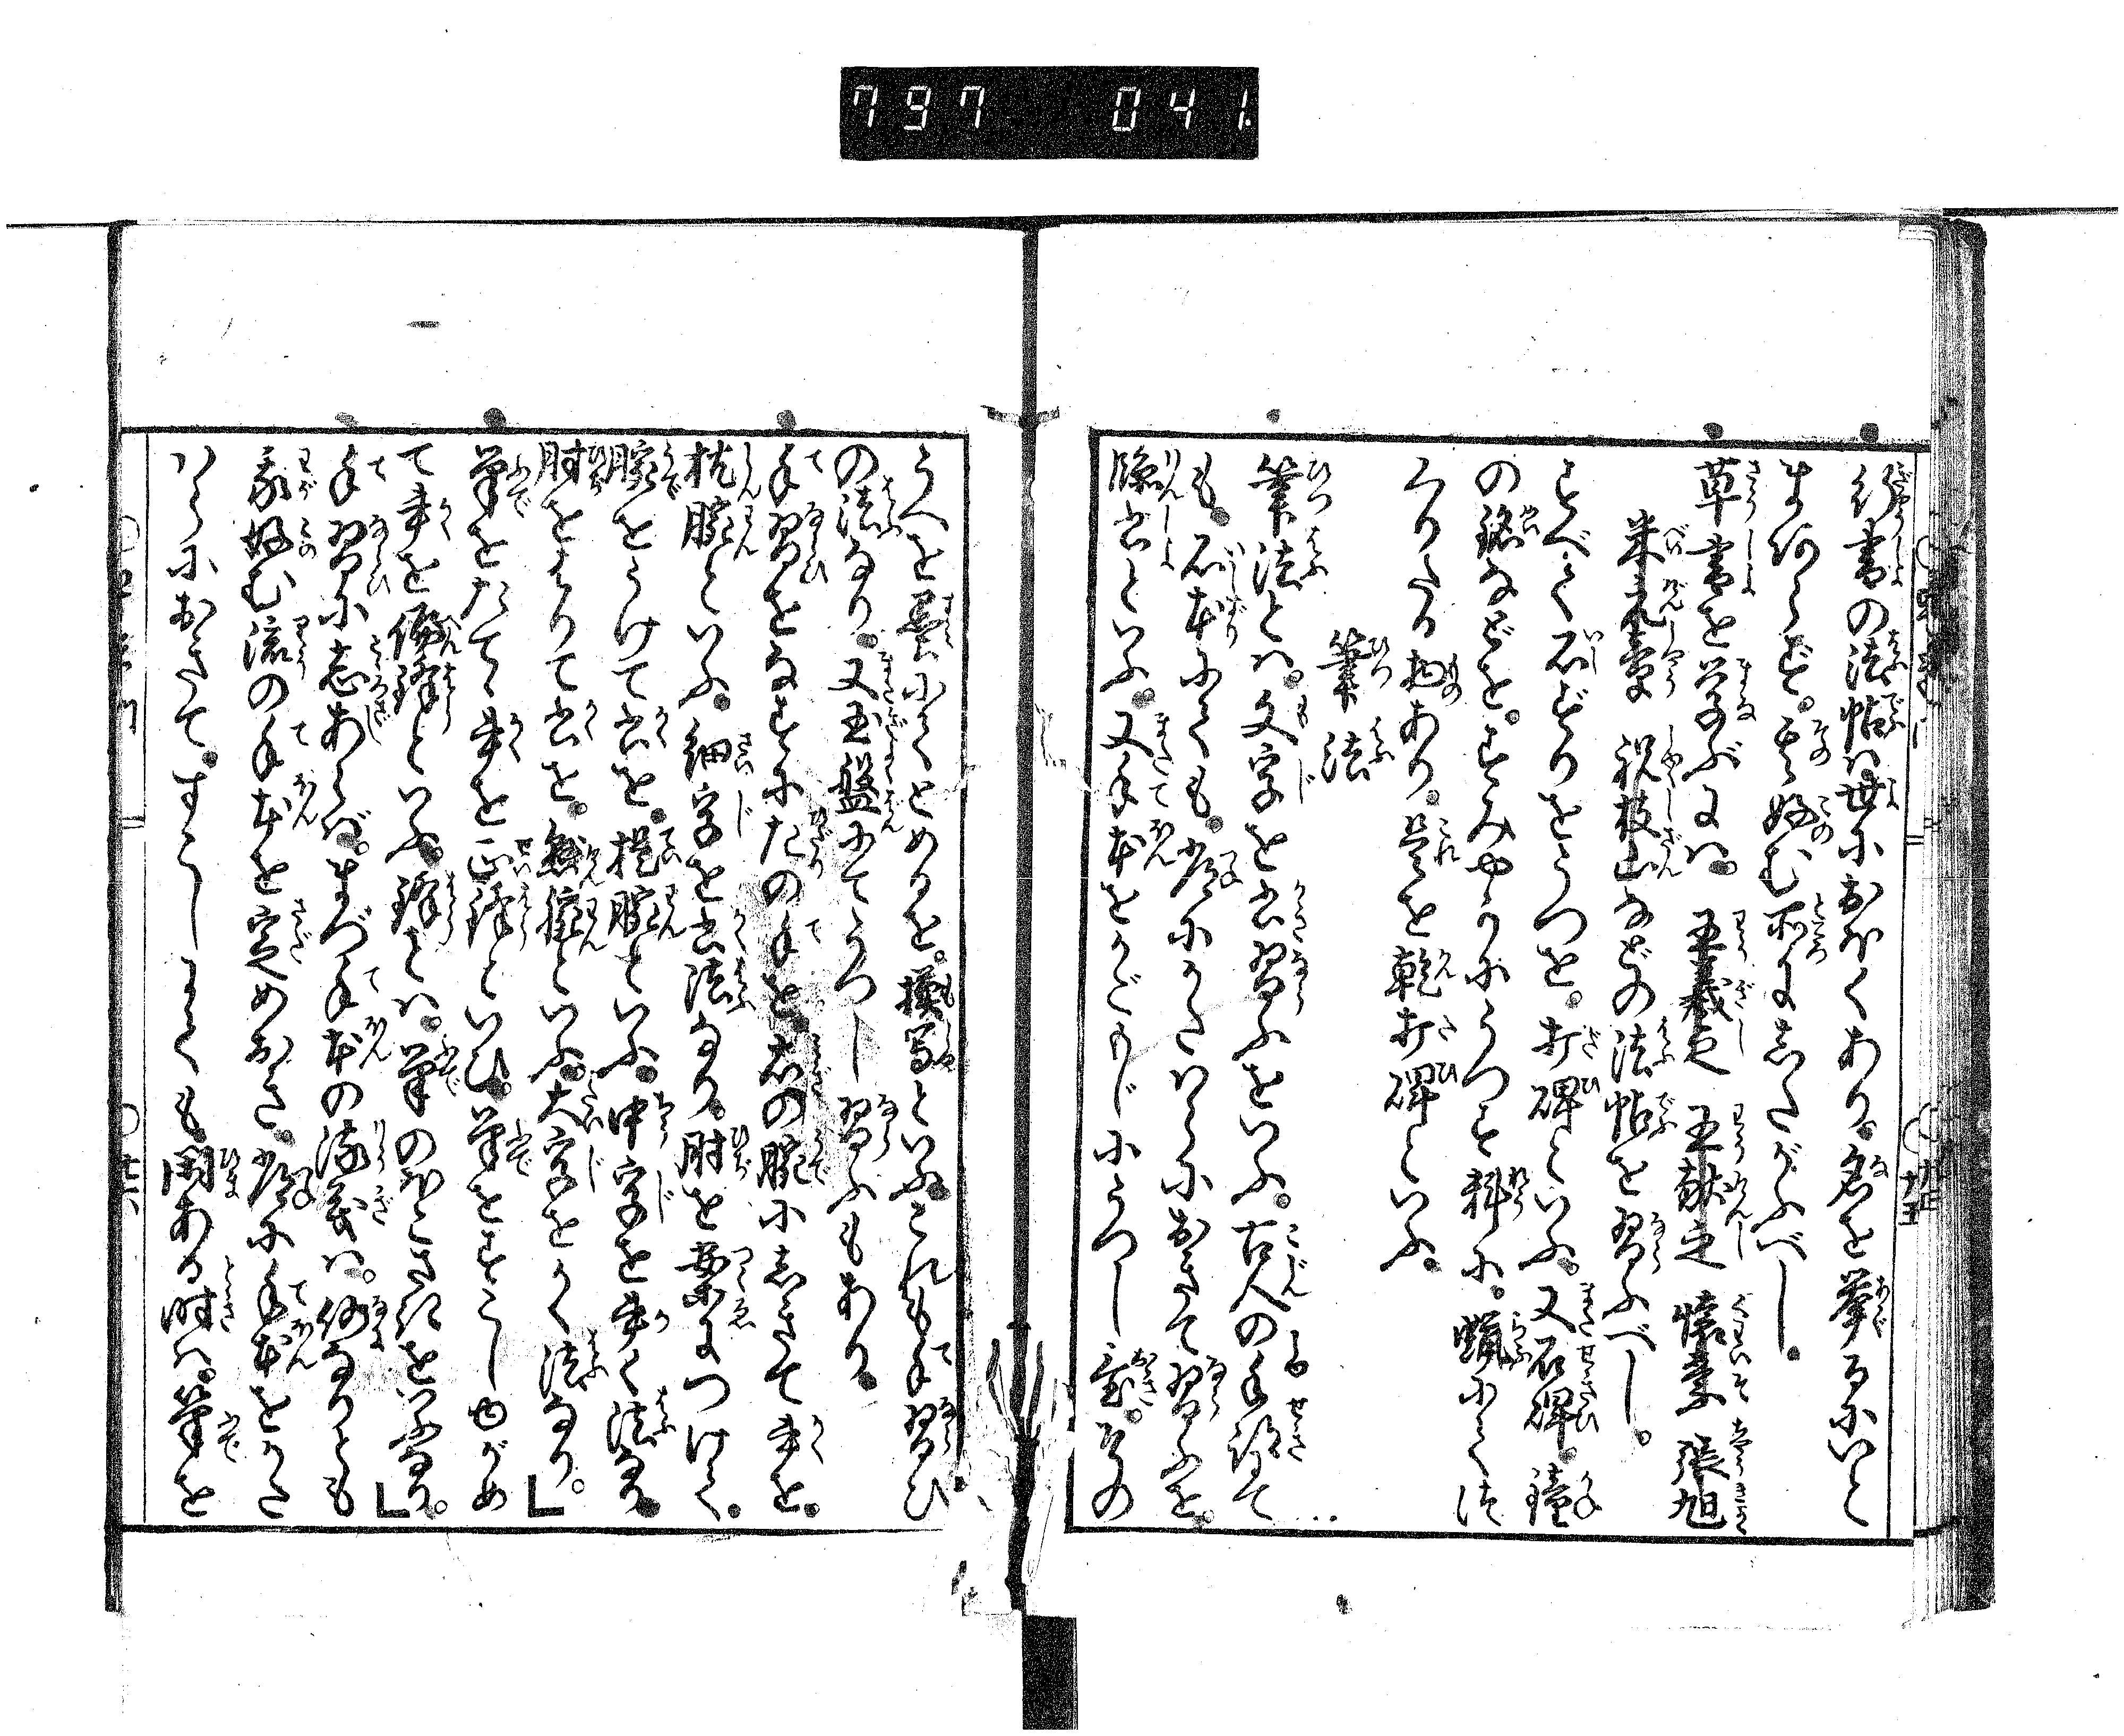 797 041
行書の法帖ハ世におほくあり。名を挙るにいと
ま何らず。其好む所にしたがふべし。
草書を学ぶにハ。王羲之 王献之 懐素 張旭
米元章 祝枝山などの法帖を習ふべし。
すべて石ずりをうつを。打碑といふ。又石碑。鐘
の銘などを。すみやかにうつす料に。蝋にて
くりたる物あり。是を乾打碑といふ。
筆法
筆法とハ。文字を書習ふをいふ。古人の手跡にて
も。石本にても。常にかたハらにおきて習ふを。
臨書といふ。又手本をかごもじにうつし置。その
うへを墨にてとめるを。摸写といふこれも手習ひ
の法なり。又玉盤にてうつし習ふもあり。
手習をなすに左の手を。右の腕にしきて書を。
枕腕といふ。細字を書法なり。肘を案につけて。
腕をうけて書を。提腕といふ。中字を書く法なり。
肘をはりて書を。懸腕といふ。大字をかく法なり。
筆をたてゝ書を正鋒といひ。筆をすこしゆがめ
て書を偏鋒といふ。鋒とハ。筆のほこさきをいふなり。
手習に志あらば。まづ手本の流義ハ。何なりとも
我好む流の手本を定めおき。常に手本をかた
ハらにおきて。すこしにても間ある時ハ。筆を